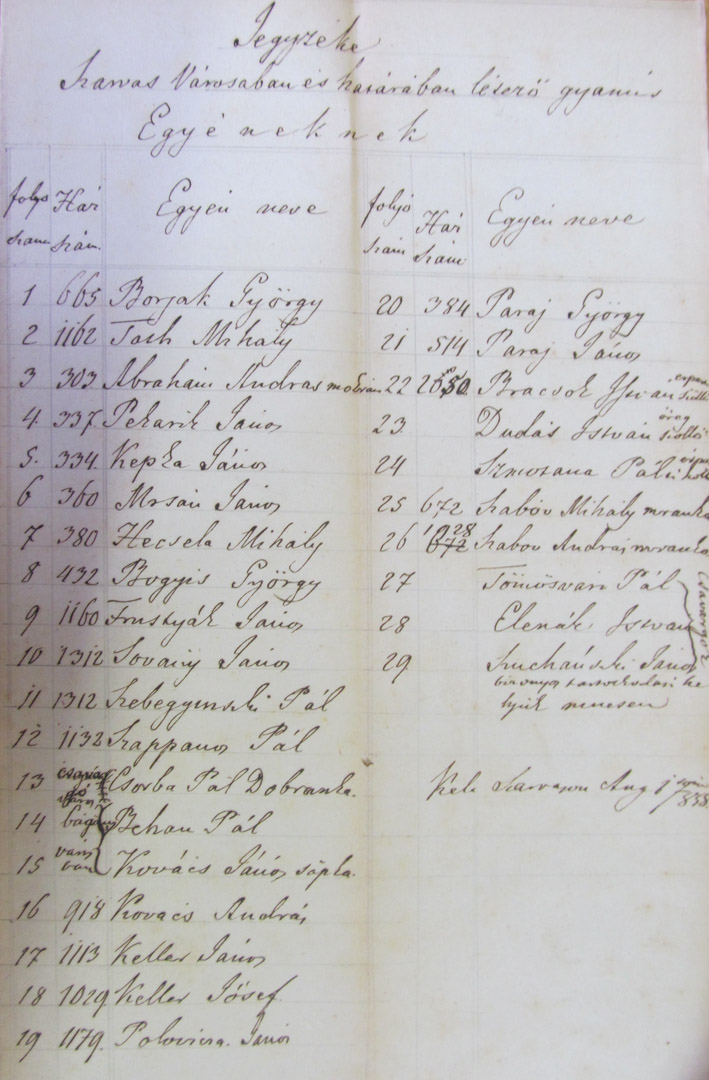 Jegyzéke
Szarvas Városaban és határában létező gyanús
Egyéneknek
folyo szam Ház szám. Egyén neve
1 665 Borjak György
2 1162 Tóth Mihály
3 303 Abrahám Andras mokran
4. 337. Pekarik János
5. 334. Kepka János
6 360 Mrsan János
7 380 Hecsela Mihaly
8 432 Bogyis György
9 1160 Frnstyák János
10 1312 Sovany János
11 1312 Szebegyinski Pál
12 1132 Szappanos Pál
13 Csorba Pál Dobranka.
14 Behan Pál
15 Kovács János sipka.
16 918 Kovacs András
17 1113 Keller János
18 1029 Keller Jósef
19 1179. Polovicza. János
folyó szám Ház szám Egyén neve
20 384 Paraj György
21 514 Paraj János
22 Bracsok Istvan
23. Dudás István öreg szöllö
24 Szmosana Pál
25 672 Szabov Mihály mranka
26 1028 Szabov András mranka
27 Tömösvári Pál
28 Elenák Istvan
29. Suchanski János
bizonyos tartozkodasi he
lyük nincsen
Kelt Szarvason Aug 1 838.